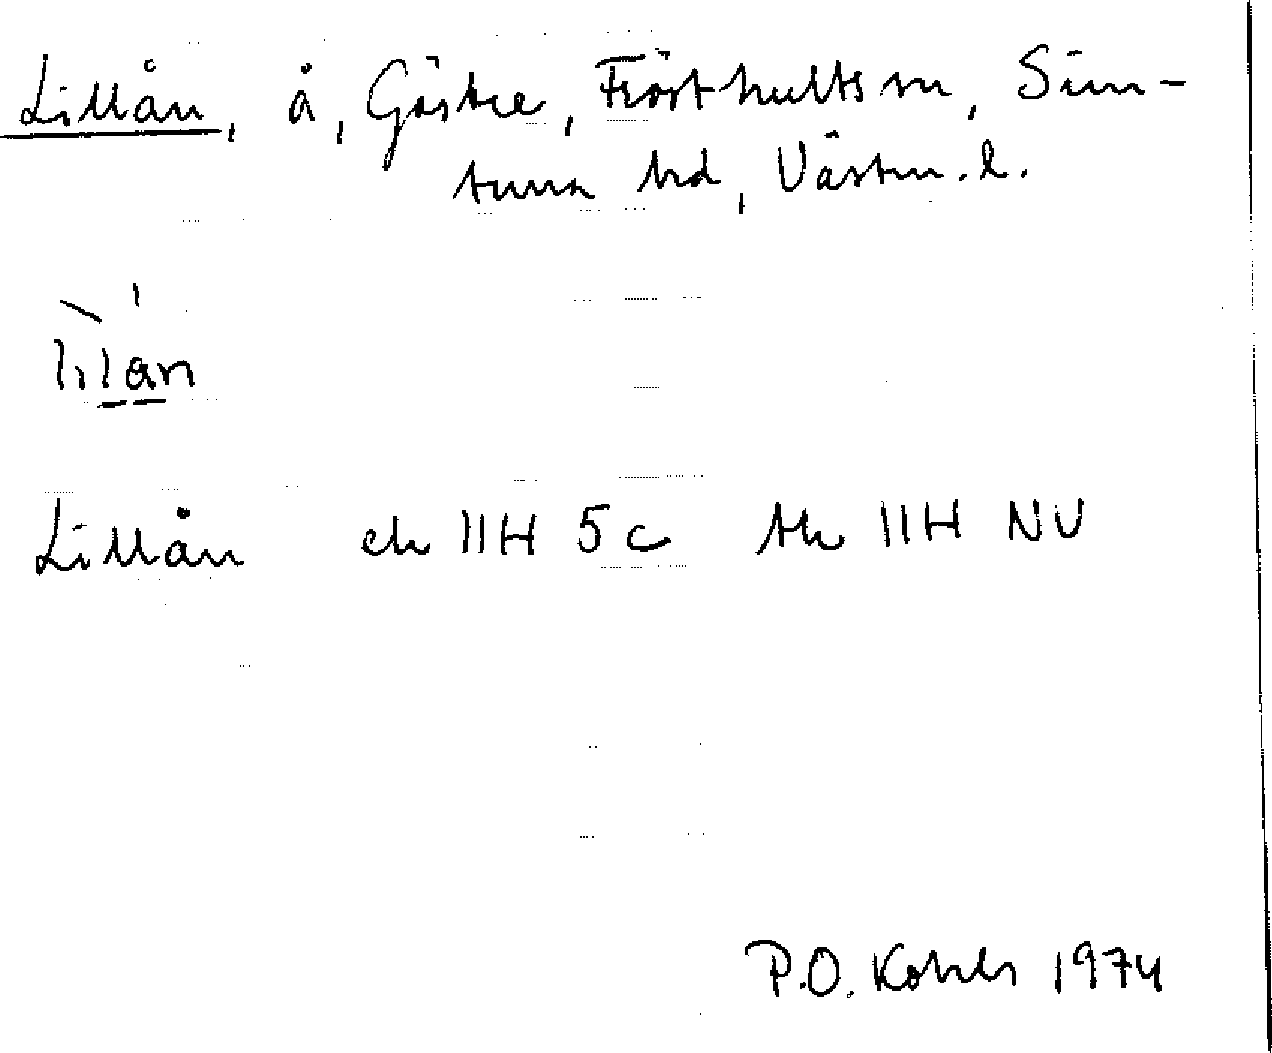 Lillån, å, Gästre, Frösthults sn, Sim-
tuna hd, Västm.l.
lilan
Lillån ek 11H 5c tk 11H NV
P.O. Kohls 1974